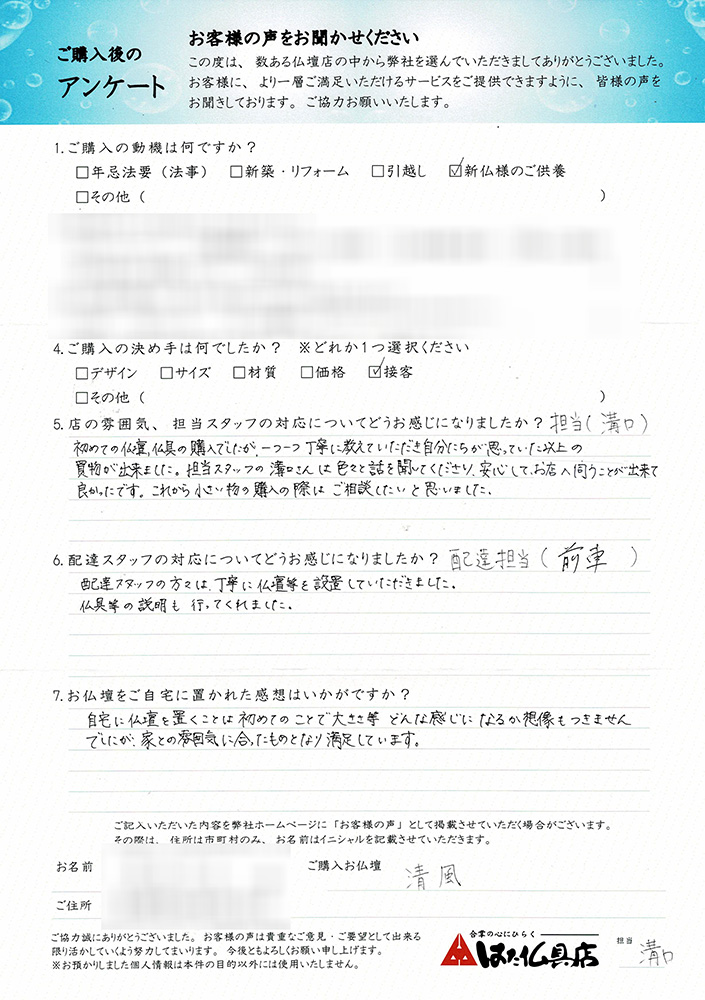 お客様の声をお聞かせください
ご購入後の
アンケート
この度は、数ある仏壇店の中から弊社を選んでいただきましてありがとうございました。
お客様に、より一層ご満足いただけるサービスをご提供できますように、皆様の声を
お聞きしております。ご協力お願いいたします。
1.ご購入の動機は何ですか?
□年忌法要(法事) □新築・リフォーム □引越し ☑新仏様のご供養
□その他( )
4.ご購入の決め手は何でしたか? ※どれか1つ選択ください
□デザイン □サイズ □材質 □価格 ☑接客
□その他( )
5.店の雰囲気、担当スタッフの対応についてどうお感じになりましたか?担当(溝口)
初めての仏壇,仏具の購入でしたが、一つ一つ丁寧に教えていただき自分たちが思っていた以上の
買物が出来ました。担当スタッフの溝口さんは色々と話を聞いてくださり、安心して、お店へ伺うことが出来て
良かったです。これから小さい物の購入の際はご相談したいと思いました。
6.配達スタッフの対応についてどうお感じになりましたか?配達担当(前車)
配達スタッフの方々は、丁寧に仏壇等を設置していただきました。
仏具等の説明も行ってくれました。
7.お仏壇をご自宅に置かれた感想はいかがですか?
自宅に仏壇を置くことは初めてのことで大きさ等どんな感じになるか想像もつきません
でしたが、家との雰囲気に合ったものとなり満足しています。
ご記入いただいた内容を弊社ホームページに「お客様の声」として掲載させていただく場合がございます。
その際は、住所は市町村のみ、お名前はイニシャルを記載させていただきます。
お名前
ご購入お仏壇 清風
ご住所
ご協力誠にありがとうございました。お客様の声は貴重なご意見・ご要望として出来る
限り活かしていくよう努力してまいります。今後ともよろしくお願い申し上げます。
※お預かりしました個人情報は本件の目的以外には使用いたしません。
合掌の心にひらく
はた仏具店
担当 溝口